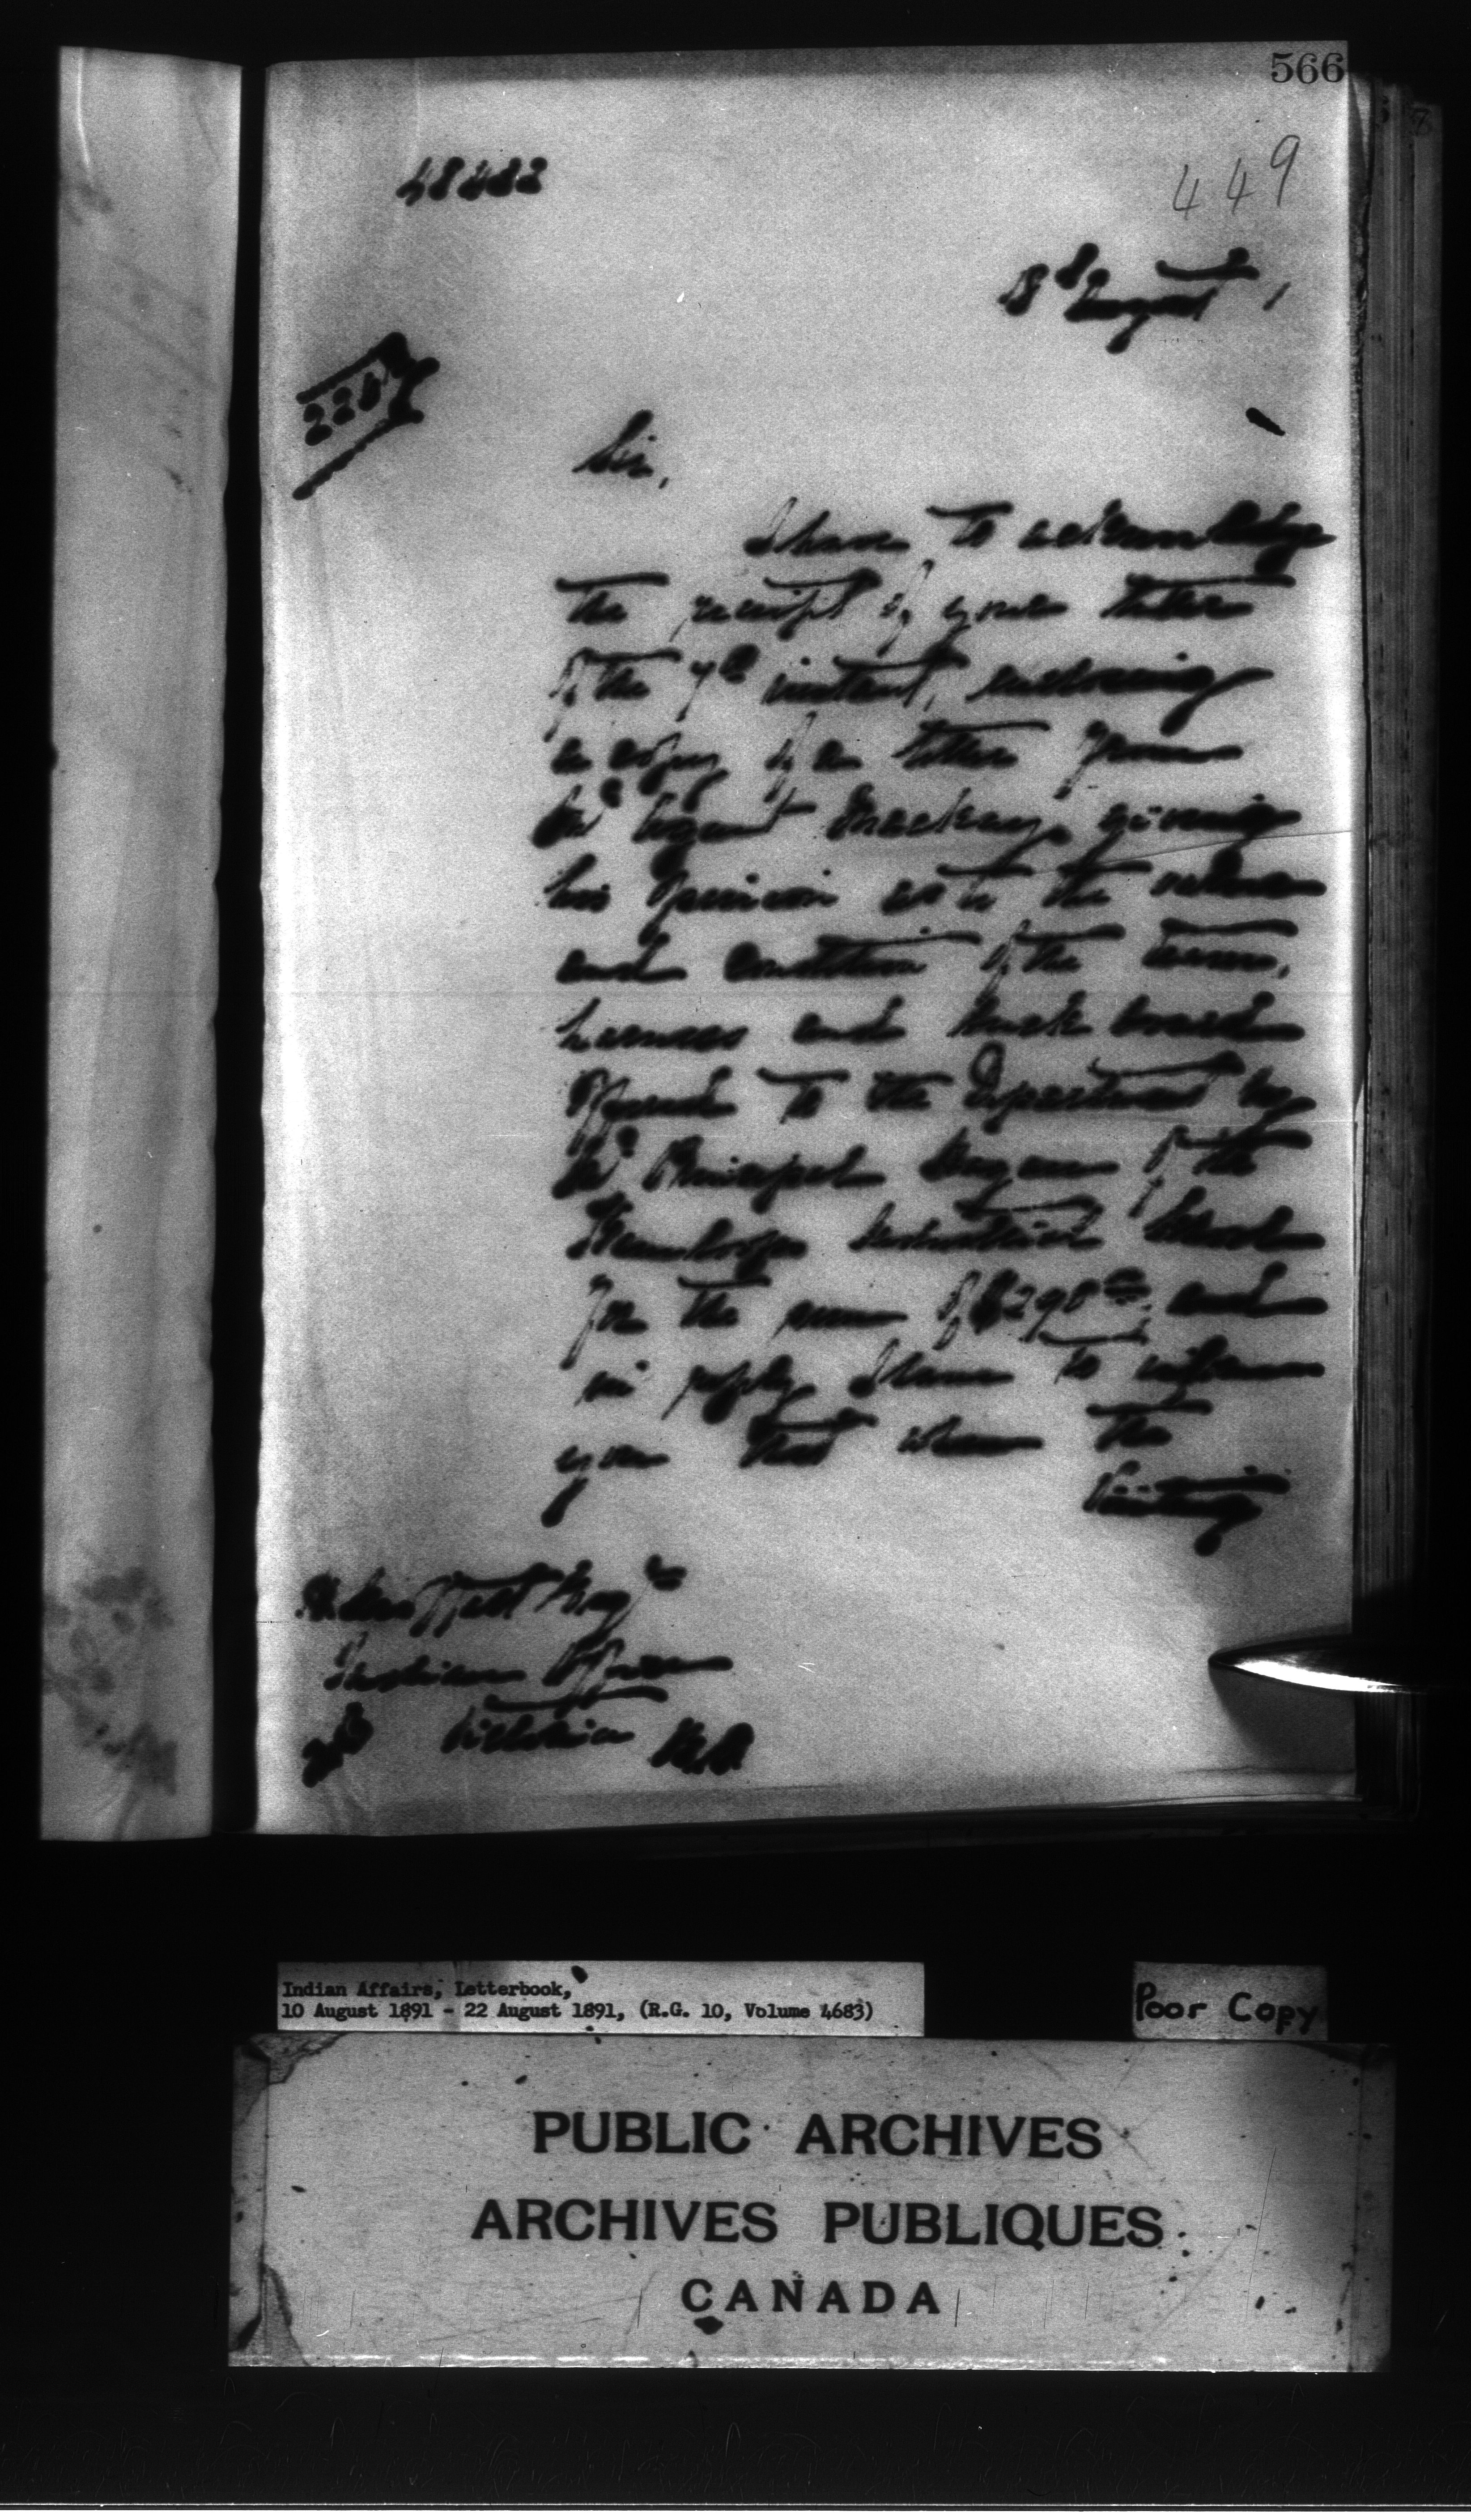 566
449
18th August 1
Sir,
I have to acknowledge
the receipt of your letter
of the 7th instant, enclosing
a copy of a letter from
Mr Agent Mackay giving
his opinion as to the value
and condition of the team,
harness and buck board
offered to the Department by
Mr Principal Hagan of the
Kamloops Industrial School
for the sum of $290.00 and
in reply I have to inform
you that when the
Esqre
Indian Office
Victoria B.C.
Indian Affairs, Letterbook,
10 August 1891 - 22 August 1891, (R.G. 10, Volume 4683)
Poor Copy
PUBLIC ARCHIVES
ARCHIVES PUBLIQUES
CANADA